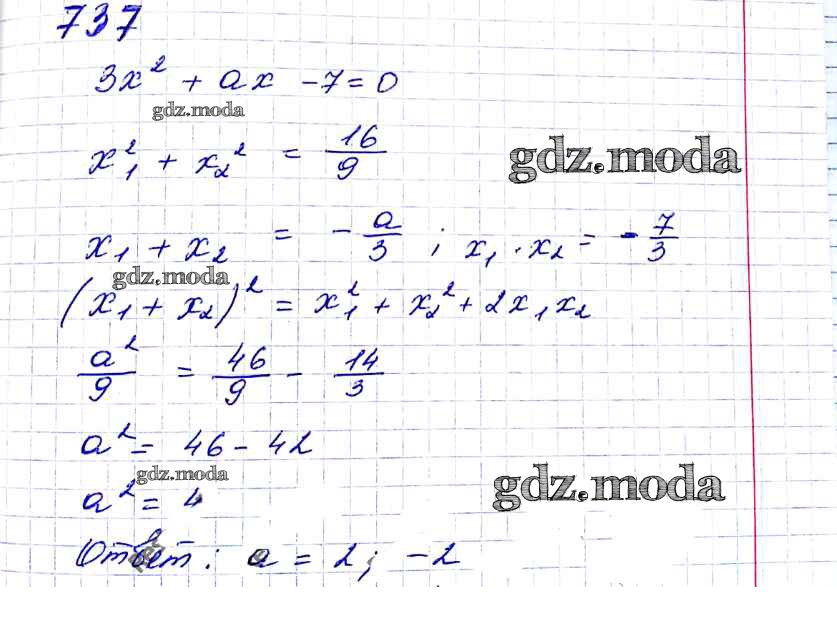 737
3x² + ax - 7 = 0
gdz.moda
x₁² + x₂² = 16/9
gdz.moda
x₁ + x₂ = - a/3 ; x₁ · x₂ = - 7/3
gdz.moda
(x₁ + x₂)² = x₁² + x₂² + 2x₁x₂
a²/9 = 46/9 - 14/3
a² = 46 - 42
gdz.moda
a² = 4
gdz.moda
Ответ: a = 2; -2